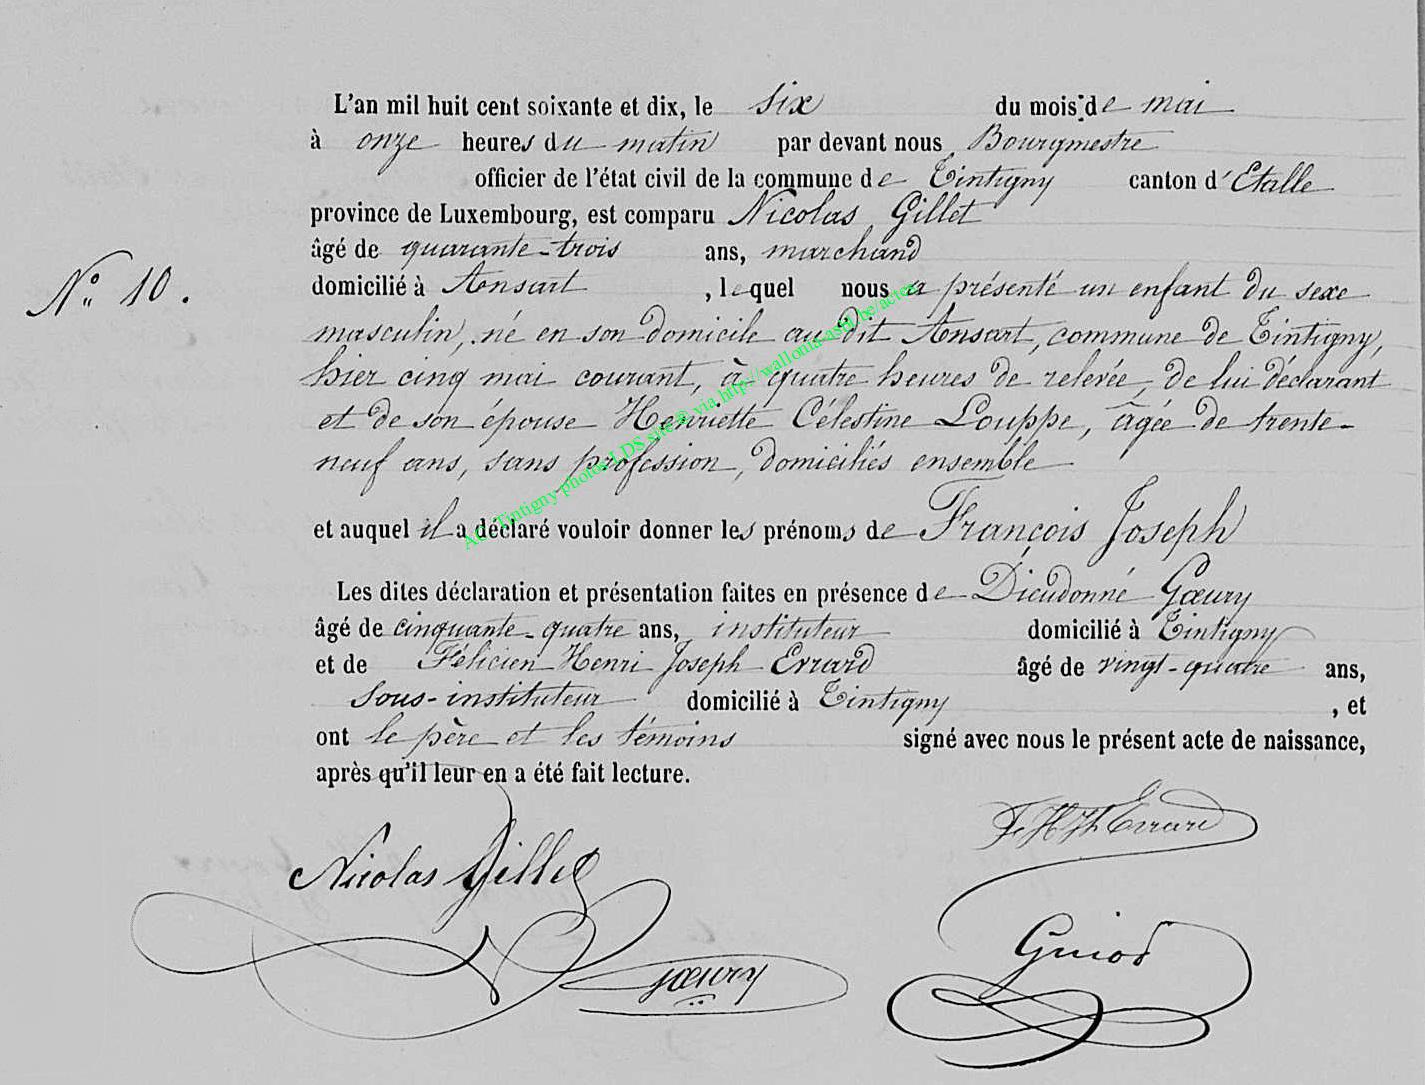 L'an mil huit cent soixante et dix, le six du mois de mai
à onze heures du matin par devant nous Bourgmestre
officier de l'état civil de la commune de Tintigny canton d'Etalle
province de Luxembourg, est comparu Nicolas Gillet
âgé de quarante-trois ans, marchand
N° 10.
domicilié à Ansart, lequel nous a présenté un enfant du sexe
masculin, né en son domicile au dit Ansart, commune de Tintigny,
hier cinq mai courant, à quatre heures de relevée, de lui déclarant
et de son épouse Henriette Célestine Louppe, âgée de trente-
neuf ans, sans profession, domiciliés ensemble
et auquel il a déclaré vouloir donner les prénoms de François Joseph
Les dites déclaration et présentation faites en présence de Dieudonné Gœury
âgé de cinquante-quatre ans, instituteur domicilié à Tintigny
et de Félicien Henri Joseph Errard âgé de vingt-quatre ans,
sous-instituteur domicilié à Tintigny, et
ont le père et les témoins signé avec nous le présent acte de naissance,
après qu'il leur en a été fait lecture.
F H Jh Errard
Nicolas Gillet
Guiot
Gœury
AC Tintigny photos LDS site @ via http://wallonia-asbl.be/actes